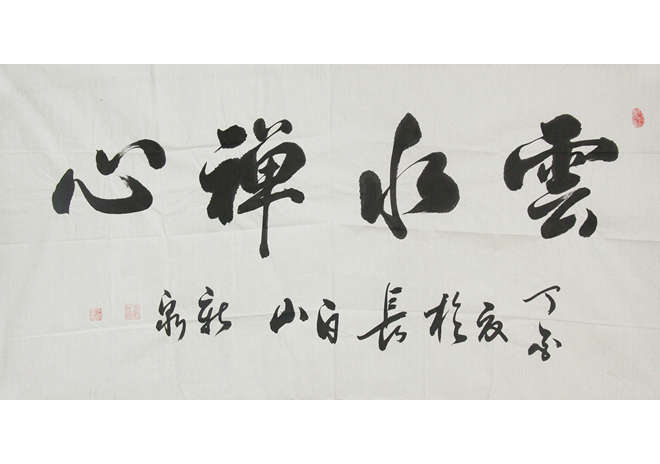 雲水禅心
丁亥夏於長白山新泉